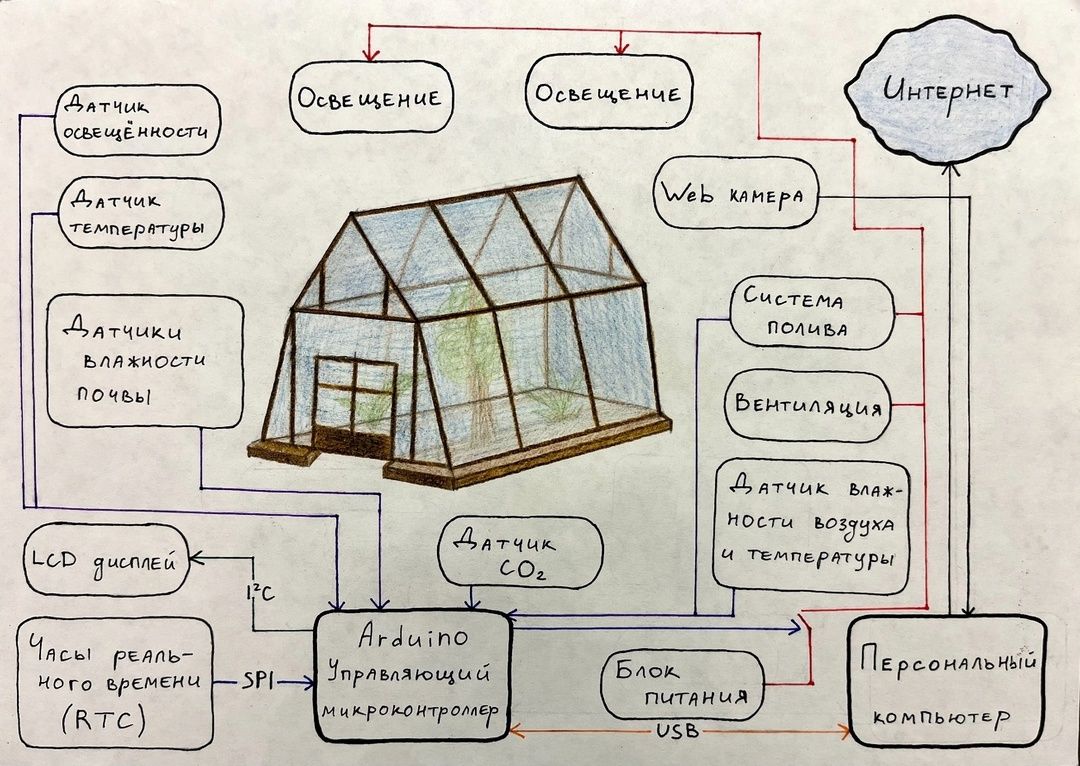 Освещение
Освещение
Интернет
Датчик
освещённости
Датчик
температуры
Web камера
Датчики
влажности
почвы
Система
полива
Вентиляция
Датчик влаж-
ности воздуха
и температуры
LCD дисплей
I²C
Датчик
CO₂
Часы реаль-
ного времени
(RTC)
SPI
Arduino
Управляющий
микроконтроллер
Блок
питания
USB
Персональный
компьютер